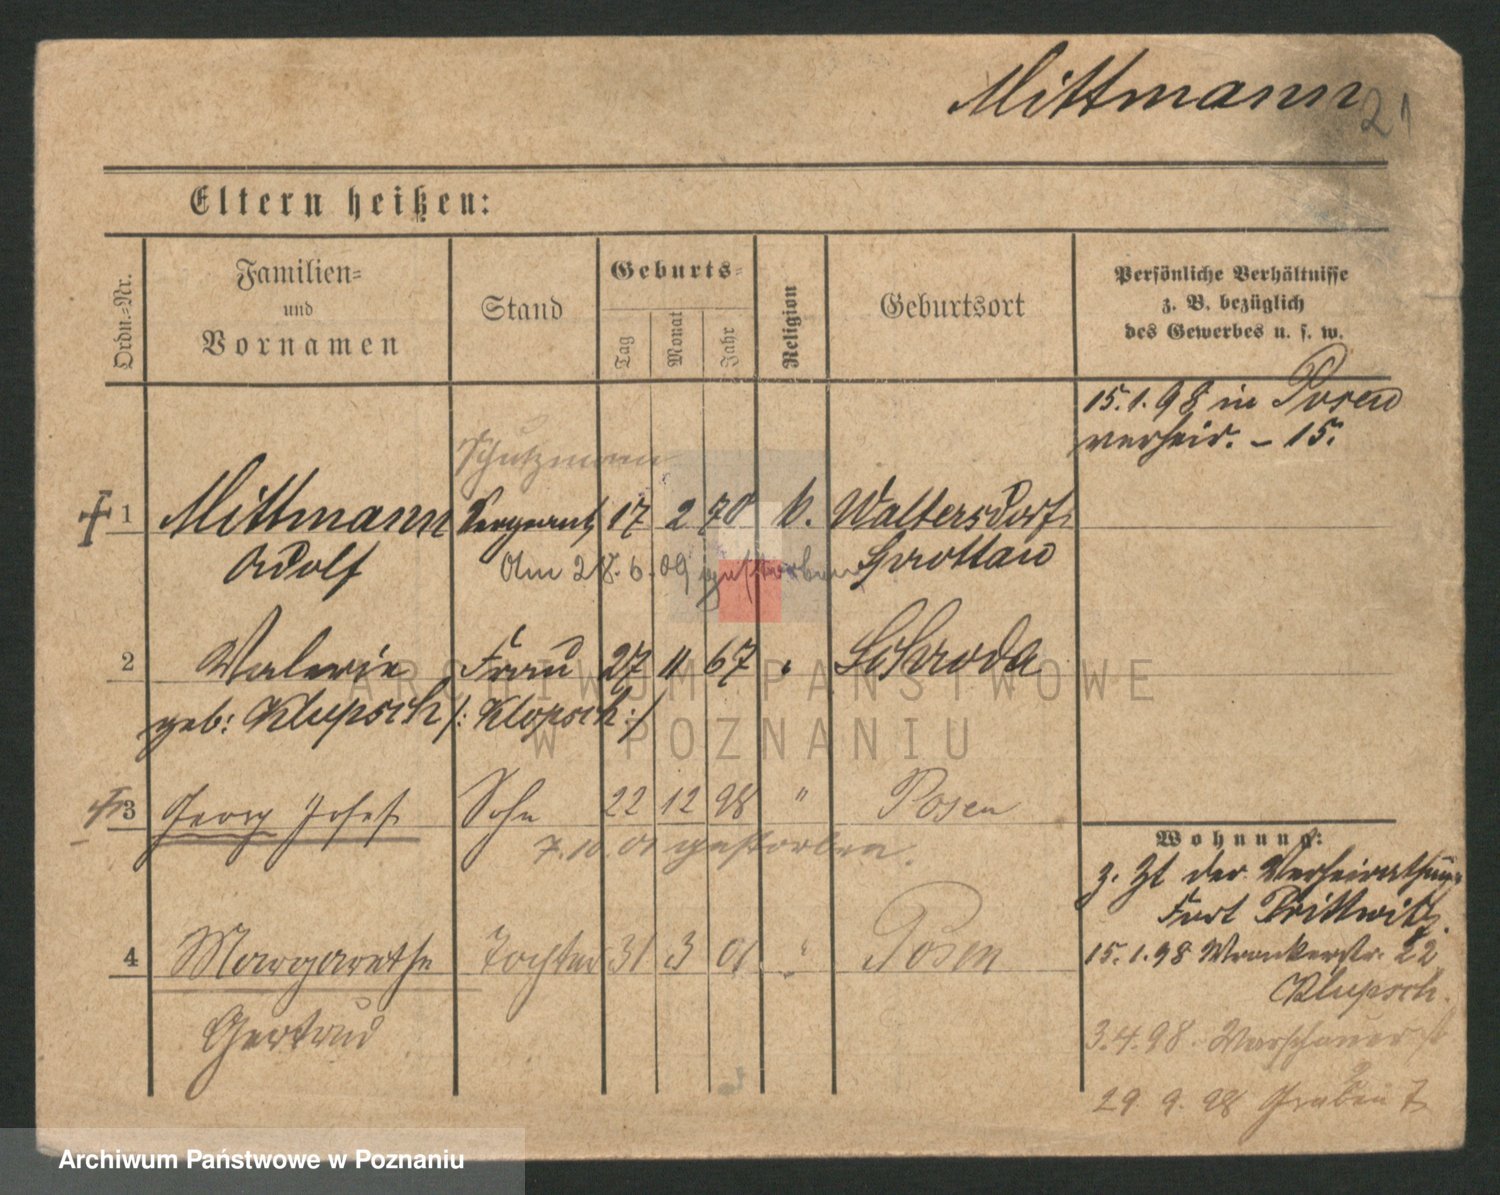 Mittmann
21
Eltern heißen:
Ordn.-Nr.
Familien-
und
Vornamen
Stand
Geburts-
Tag
Monat
Jahr
Religion
Geburtsort
Persönliche Verhältnisse
z. B. bezüglich
des Gewerbes u. s. w.
15.1.98 in Posen
verheir. - 15.
Schutzmann
1 Mittmann Sergeant 17 2 70 k. Waltersdorf
Adolf
Am 28.6.09 gestorben
Grottau
2 Valerie Frau 27 11 67 Schroda
geb: Klupsch /: Klopsch :/
3 Georg Josef Sohn 22 12 98 " Posen
7.10.01 gestorben.
4 Margarethe Tochter 31 3 01 " Posen
Gertrud
Wohnung:
z. Zt der Verheirathung
Fort Prittwitz.
15.1.98 Wronkerstr. 22
Klupsch.
3.4.98. Warschauer
29.9.98 Graben 7
ARCHIWUM PAŃSTWOWE
W POZNANIU
Archiwum Państwowe w Poznaniu